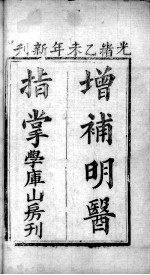 光緒乙未年新刊
增補明醫
指掌
學庫山房刊